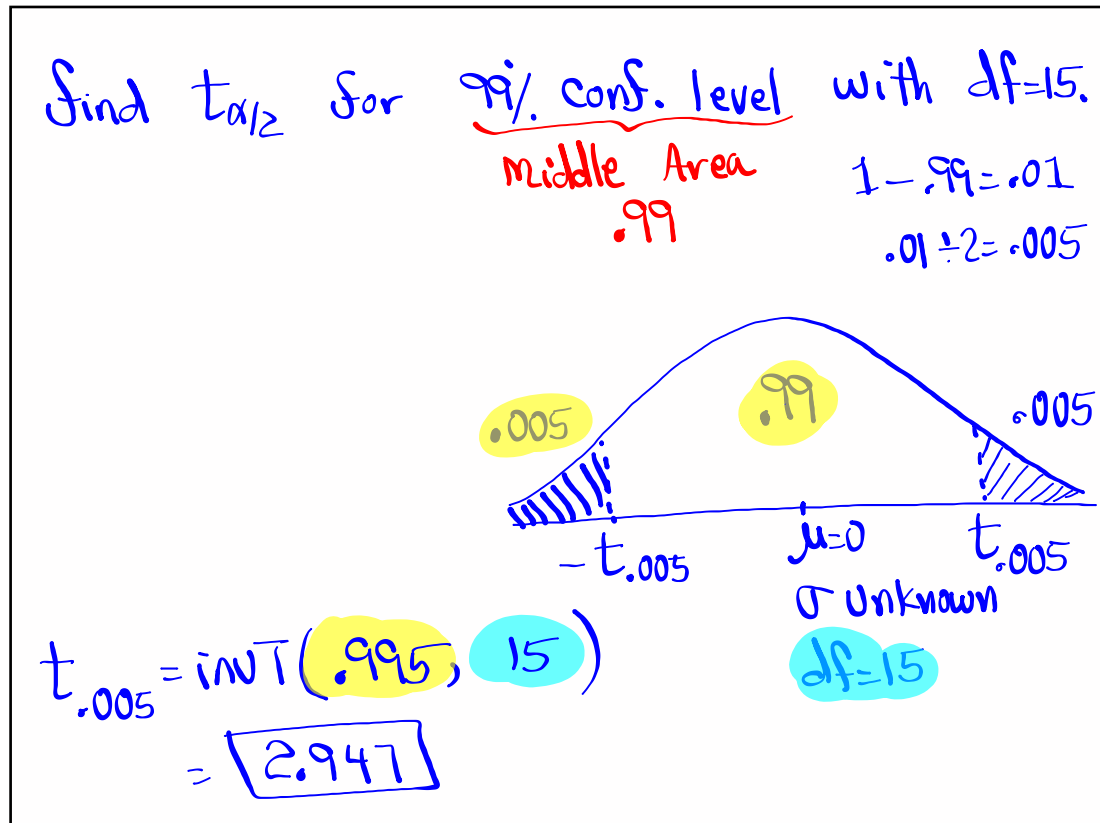 find tα/2 for 99% conf. level with df=15.
Middle Area
.99
1 - .99 = .01
.01 ÷ 2 = .005
.005 .99 .005
-t.005 μ=0 t.005
σ unknown
df=15
t.005 = invT(.995, 15)
= 2.947